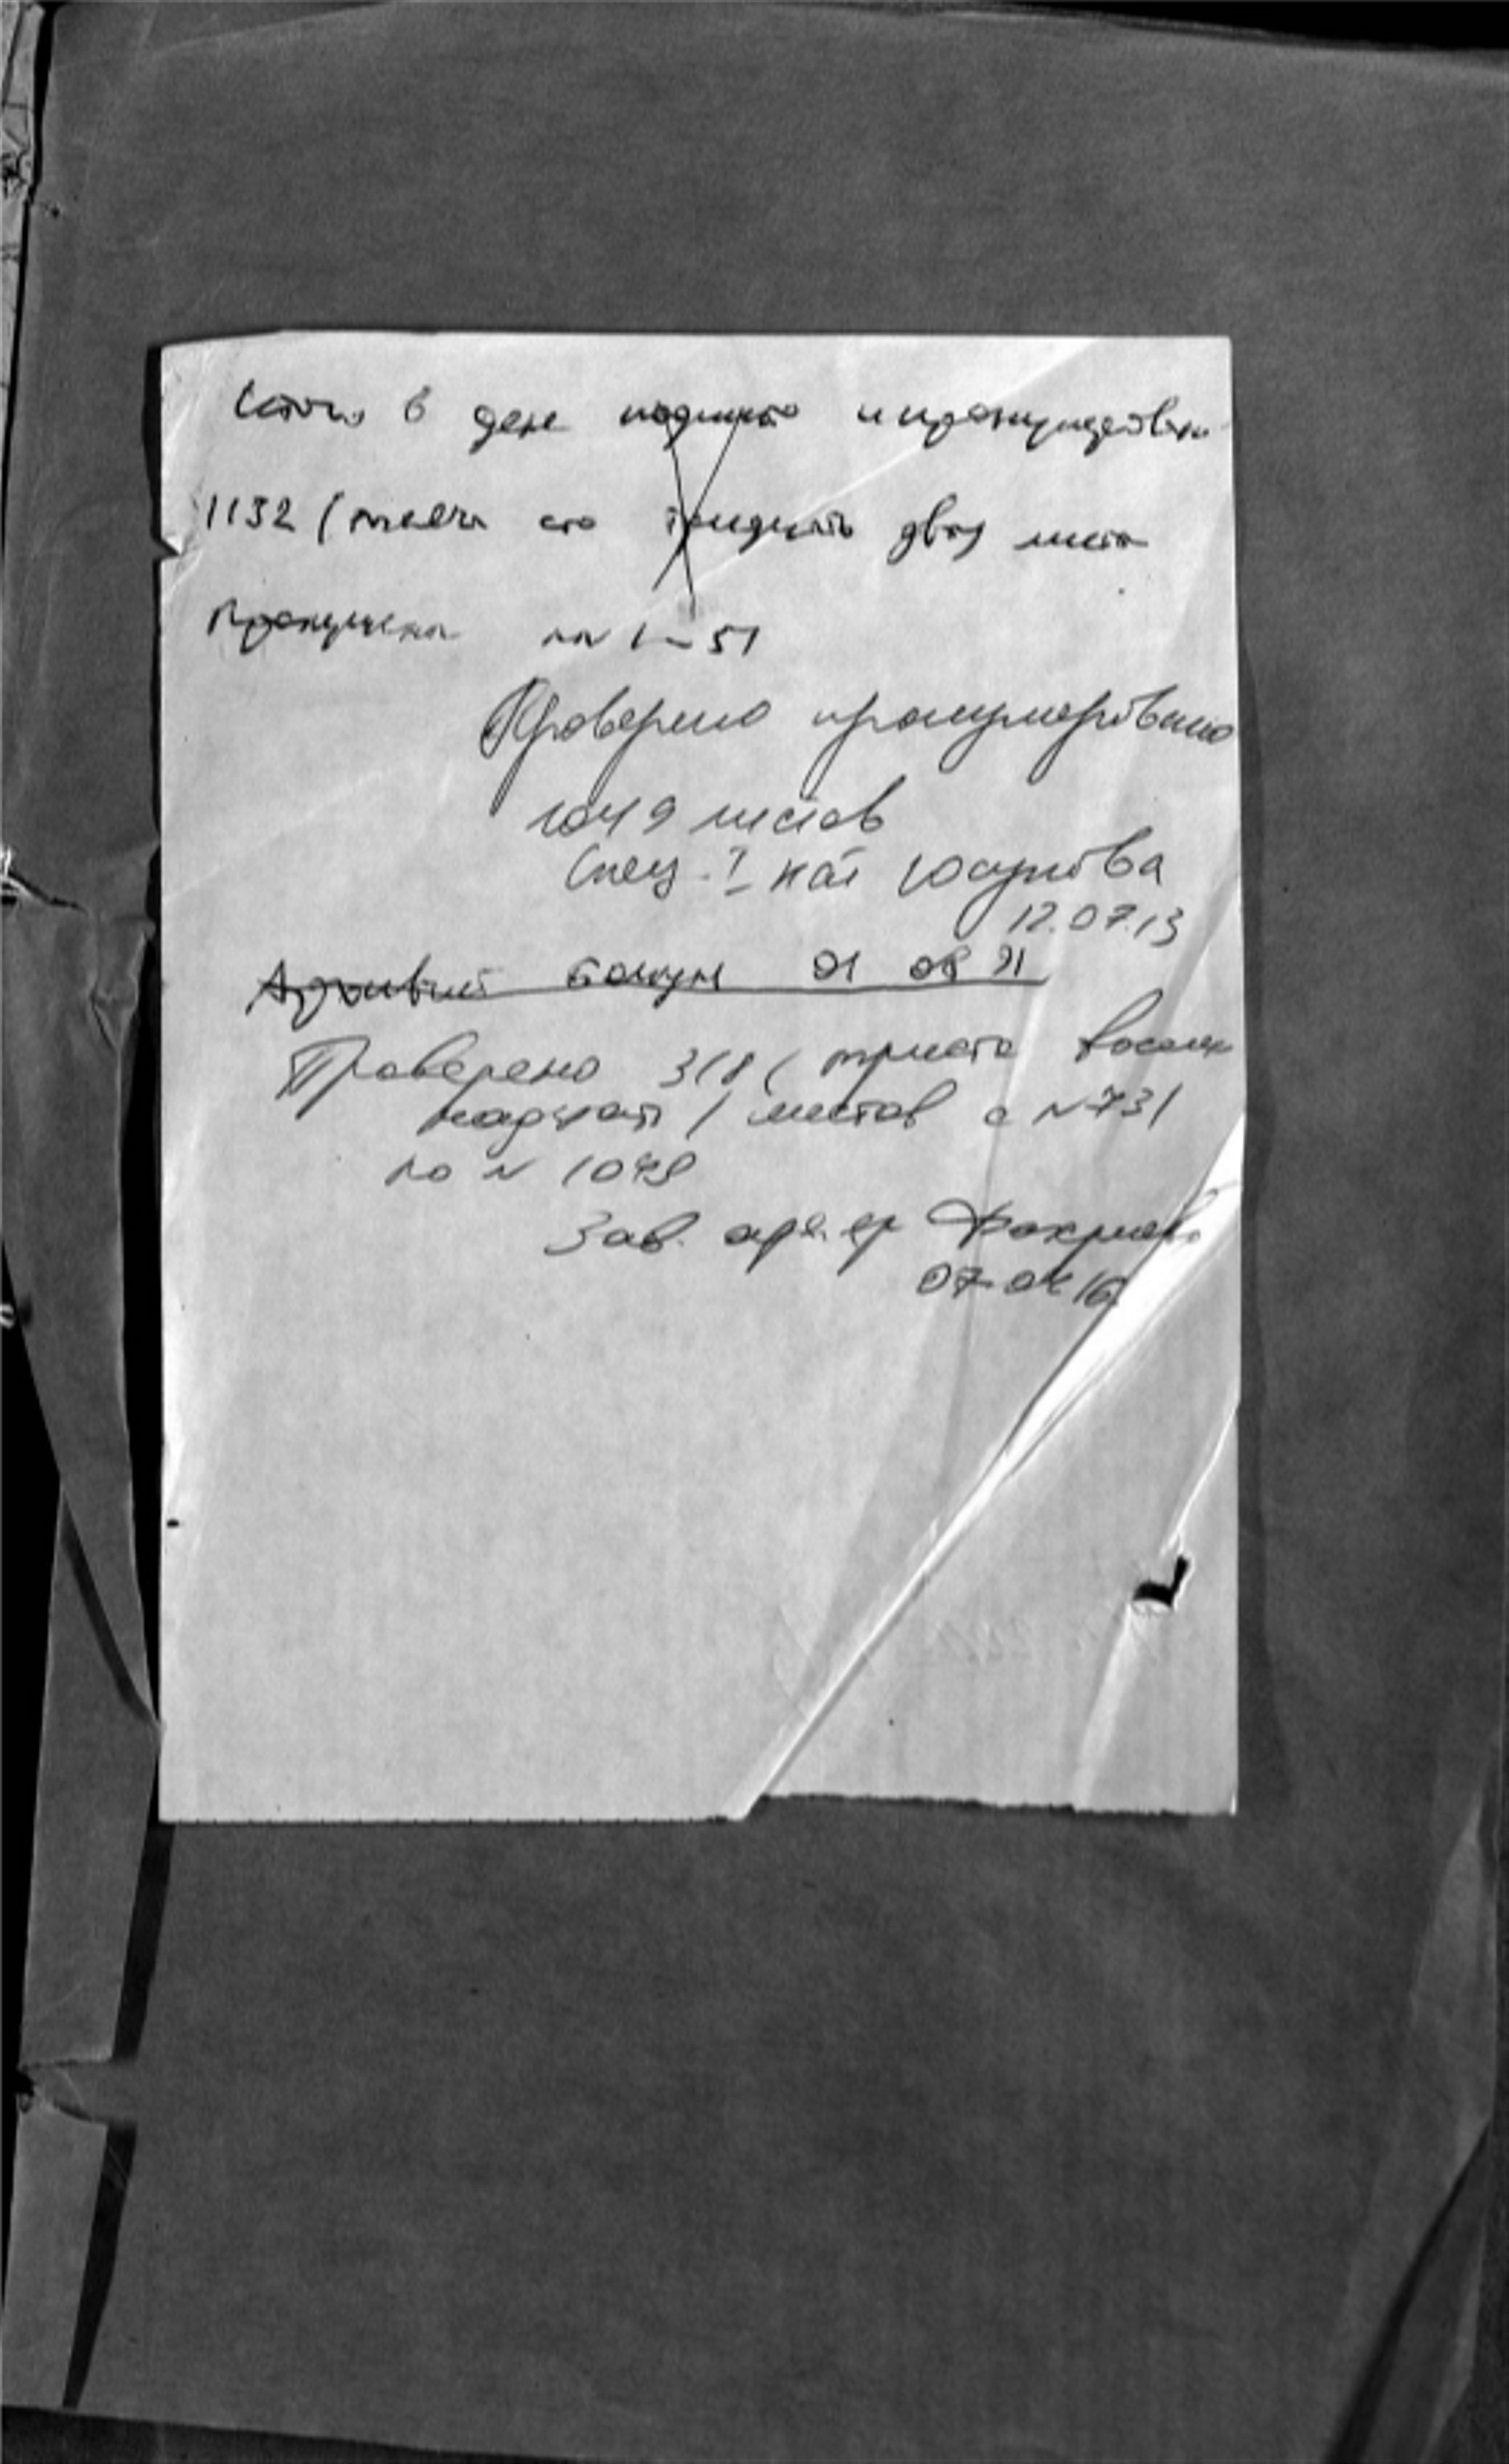 Итого в деле подшито и пронумеровано
1132 (тысяча сто тридцать два) листа
Пропущены №№ 1–51
Проверено пронумеровано
1049 листов
Спец. I кат Юсупова
12.07.13
Архивист 01 08 91
Проверено 318 (триста восем
надцать) листов с №731
по № 1049
Зав. арх.
07.04.16